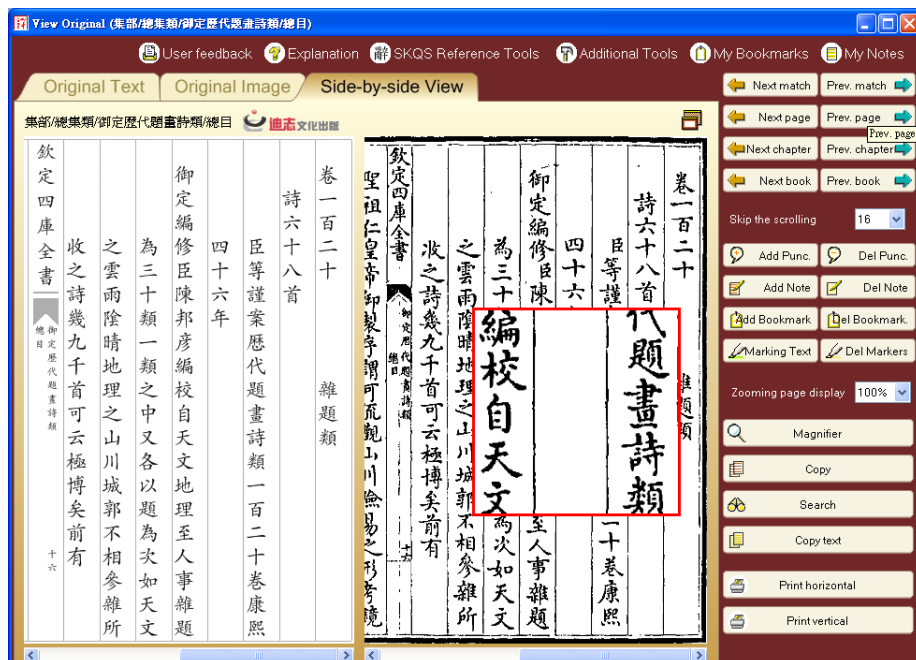 View Original (集部/總集類/御定歴代題畫詩類/總目)
User feedback
Explanation
SKQS Reference Tools
Additional Tools
My Bookmarks
My Notes
Original Text
Original Image
Side-by-side View
集部/總集類/御定歴代題畫詩類/總目
迪志文化出版
卷一百二十 雜題類
詩六十八首
臣等謹案歴代題畫詩類一百二十卷康熙
四十六年
御定編修臣陳邦彦編校自天文地理至人事雜題
為三十類一類之中又各以題為次如天文
之雲雨陰晴地理之山川城郭不相參雜所
收之詩幾九千首可云極博矣前有
欽定四庫全書
御定歴代題畫詩類
總目
十六
卷一百二十 雜題類
詩六十八首
臣等謹
一十卷康熙
四十六
御定編修臣陳
至人事雜題
為三十
為次如天文
之雲雨陰晴地理之山川城郭不相參雜所
收之詩幾九千首可云極博矣前有
欽定四庫全書
御定歴代題畫詩類
總目
十六
聖祖仁皇帝御製序謂可流觀山川險易之形考鏡
代題畫詩類
編校自天文
Next match
Prev. match
Next page
Prev. page
Prev. page
Next chapter
Prev. chapter
Next book
Prev. book
Skip the scrolling 16
Add Punc.
Del Punc.
Add Note
Del Note
Add Bookmark
Del Bookmark.
Marking Text
Del Markers
Zooming page display 100%
Magnifier
Copy
Search
Copy text
Print horizontal
Print vertical